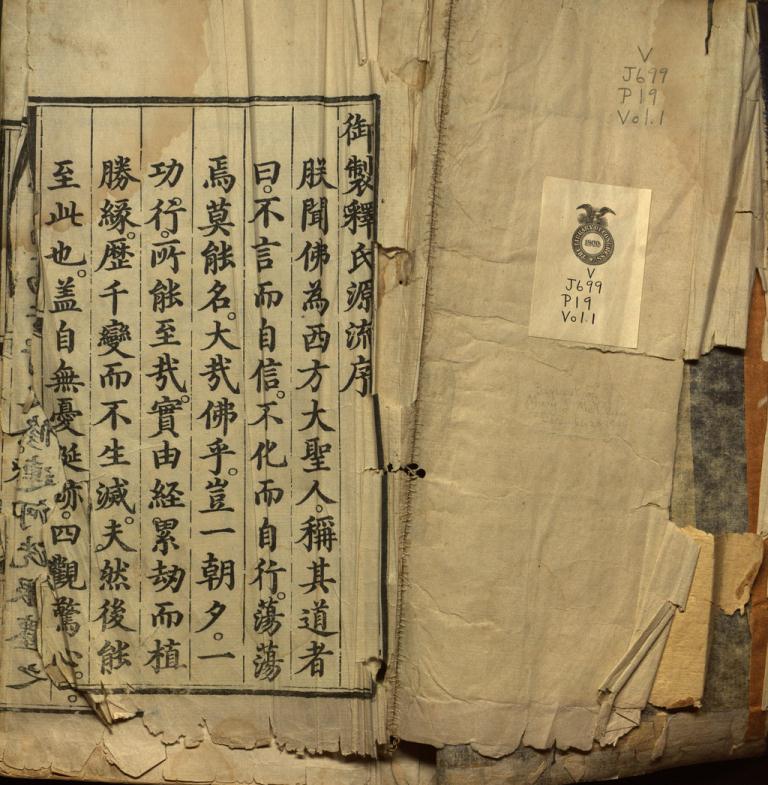 御製釋氏源流序
朕聞佛為西方大聖人。稱其道者
曰。不言而自信。不化而自行。蕩蕩
焉莫能名。大㢤佛乎。豈一朝夕。一
功行。所能至㢤。實由経累劫而植
勝緣。歷千變而不生滅。夫然後能
至此也。盖自無憂延跡。四觀驚心。
V
J699
P19
Vol.1
THE LIBRARY OF CONGRESS
1900
V
J699
P19
Vol.1